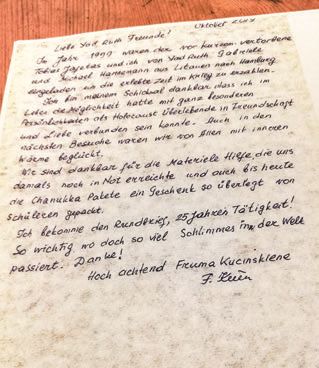 Oktober
Liebe Yad Ruth Freunde!
Im Jahr 1999 waren der vor kurzem verstorbene
Tobias Jafetas und ich von Yad Ruth, Gabriele
und Michael Hannemann aus Litauen nach Hamburg
eingeladen um die erlebte Zeit im Krieg zu erzählen.
Ich bin meinem Schicksal dankbar dass ich im
Leben die Möglichkeit hatte mit ganz besonderen
als Holocaust Überlebende in Freundschaft
und Liebe verbunden sein konnte. Auch in den
nächsten Besuche waren wir von Allen mit inneren
Wärme beglückt.
Wir sind dankbar für die Materiele Hilfe, die uns
damals noch in Not erreichte und auch bis heute
die Chanukka Pakete ein Geschenk so überlegt von
schülern gepackt.
Ich bekomme den Rundbrief, 25 Jahren Tätigkeit!
So wichtig wo doch so viel Schlimmes in der Welt
passiert. Danke!
Hoch achtend Fruma Kucinskiene
F.